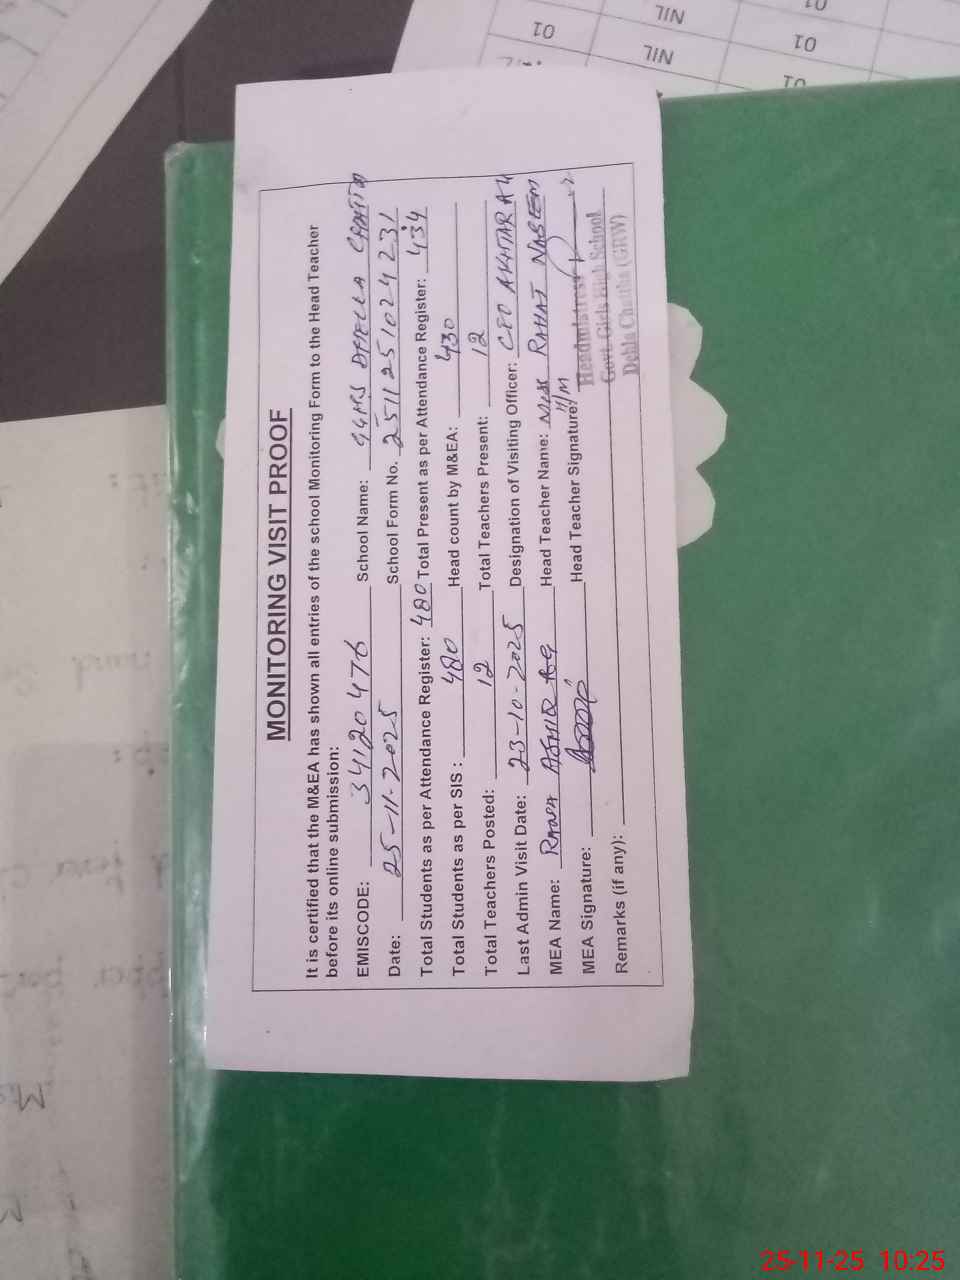 MONITORING VISIT PROOF
It is certified that the M&EA has shown all entries of the school Monitoring Form to the Head Teacher
before its online submission:
EMISCODE: 34120476 School Name: GGHS DHELLA CHATTHA
Date: 25-11-2025 School Form No. 2511251024231
Total Students as per Attendance Register: 480 Total Present as per Attendance Register: 434
Total Students as per SIS: 480 Head count by M&EA: 430
Total Teachers Posted: 12 Total Teachers Present: 12
Last Admin Visit Date: 23-10-2025 Designation of Visiting Officer: CEO AKHTAR ALI
MEA Name: RANA ASHIR Head Teacher Name: RAHAT NASEEM
MEA Signature: Head Teacher Signature: H/M
Headmistress
Govt. Girls High School
Dehla Chattha (GRW)
Remarks (if any):
01 NIL 01
NIL 01
01
25-11-25 10:25